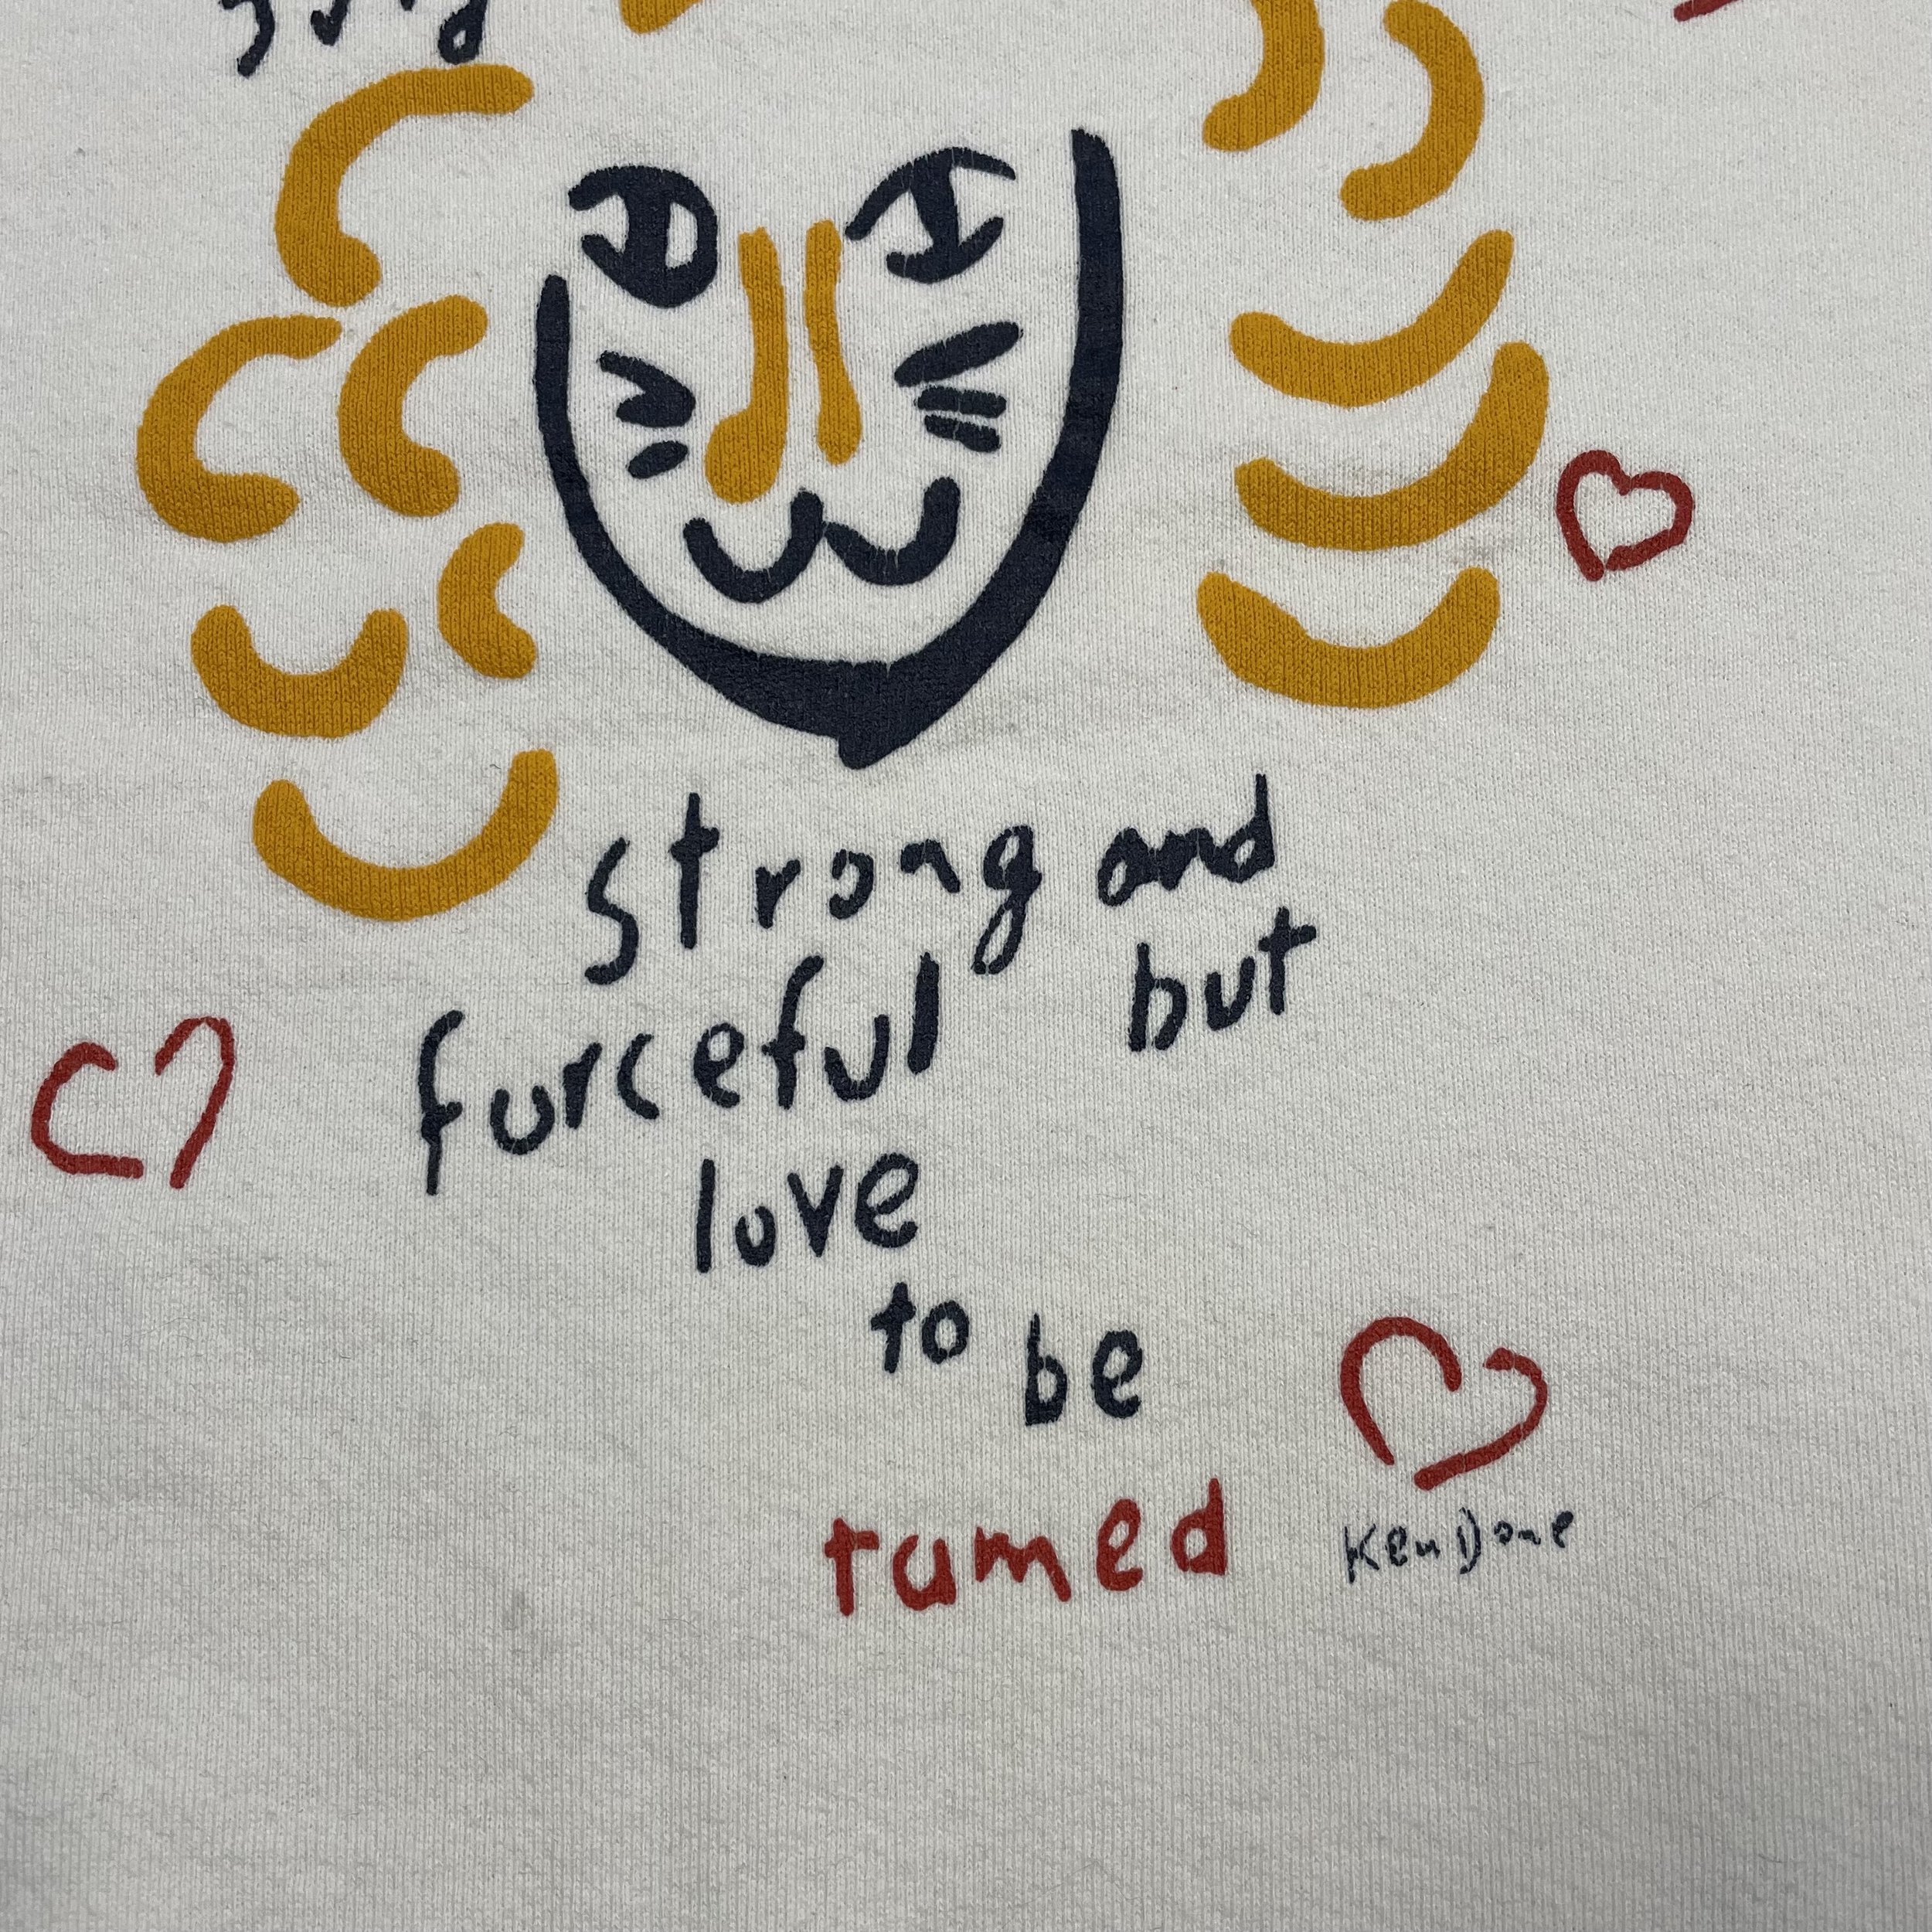 strong and
forceful but
love
to be
tamed
Ken Done